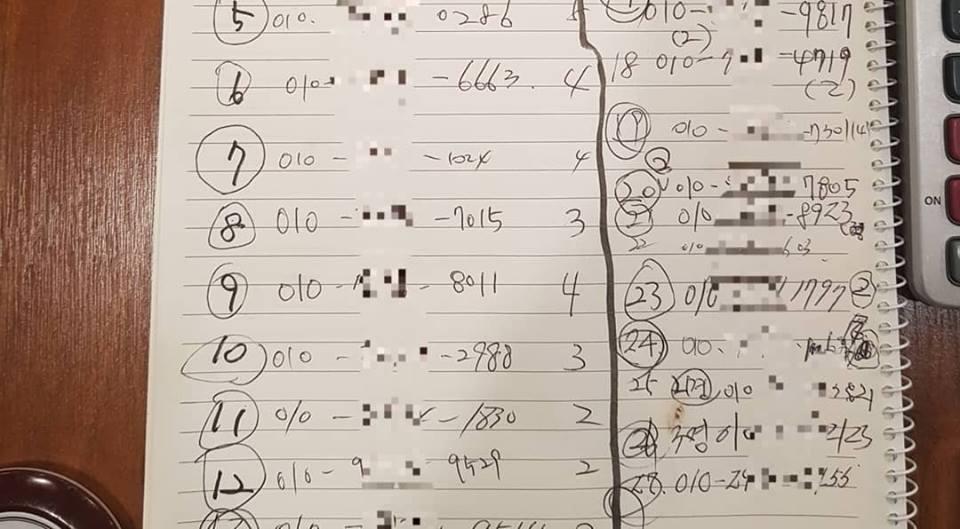 5 010- 0286
6 010- -6663. 4
7 010 - -1024 4
8 010 - -7015 3
9 010 - - 8011 4
10 010 - -2980 3
11 010 - -1830 2
12 010 - 9 9529 2
010
010- -9817
(2)
18 010-7 -4719
(2)
19 010 - -7301(4)
2
20 010 - 7805
010 -8923
010
23 010 1797 2
24 010.
25 010 2821
010 2123
28. 010-24
ON